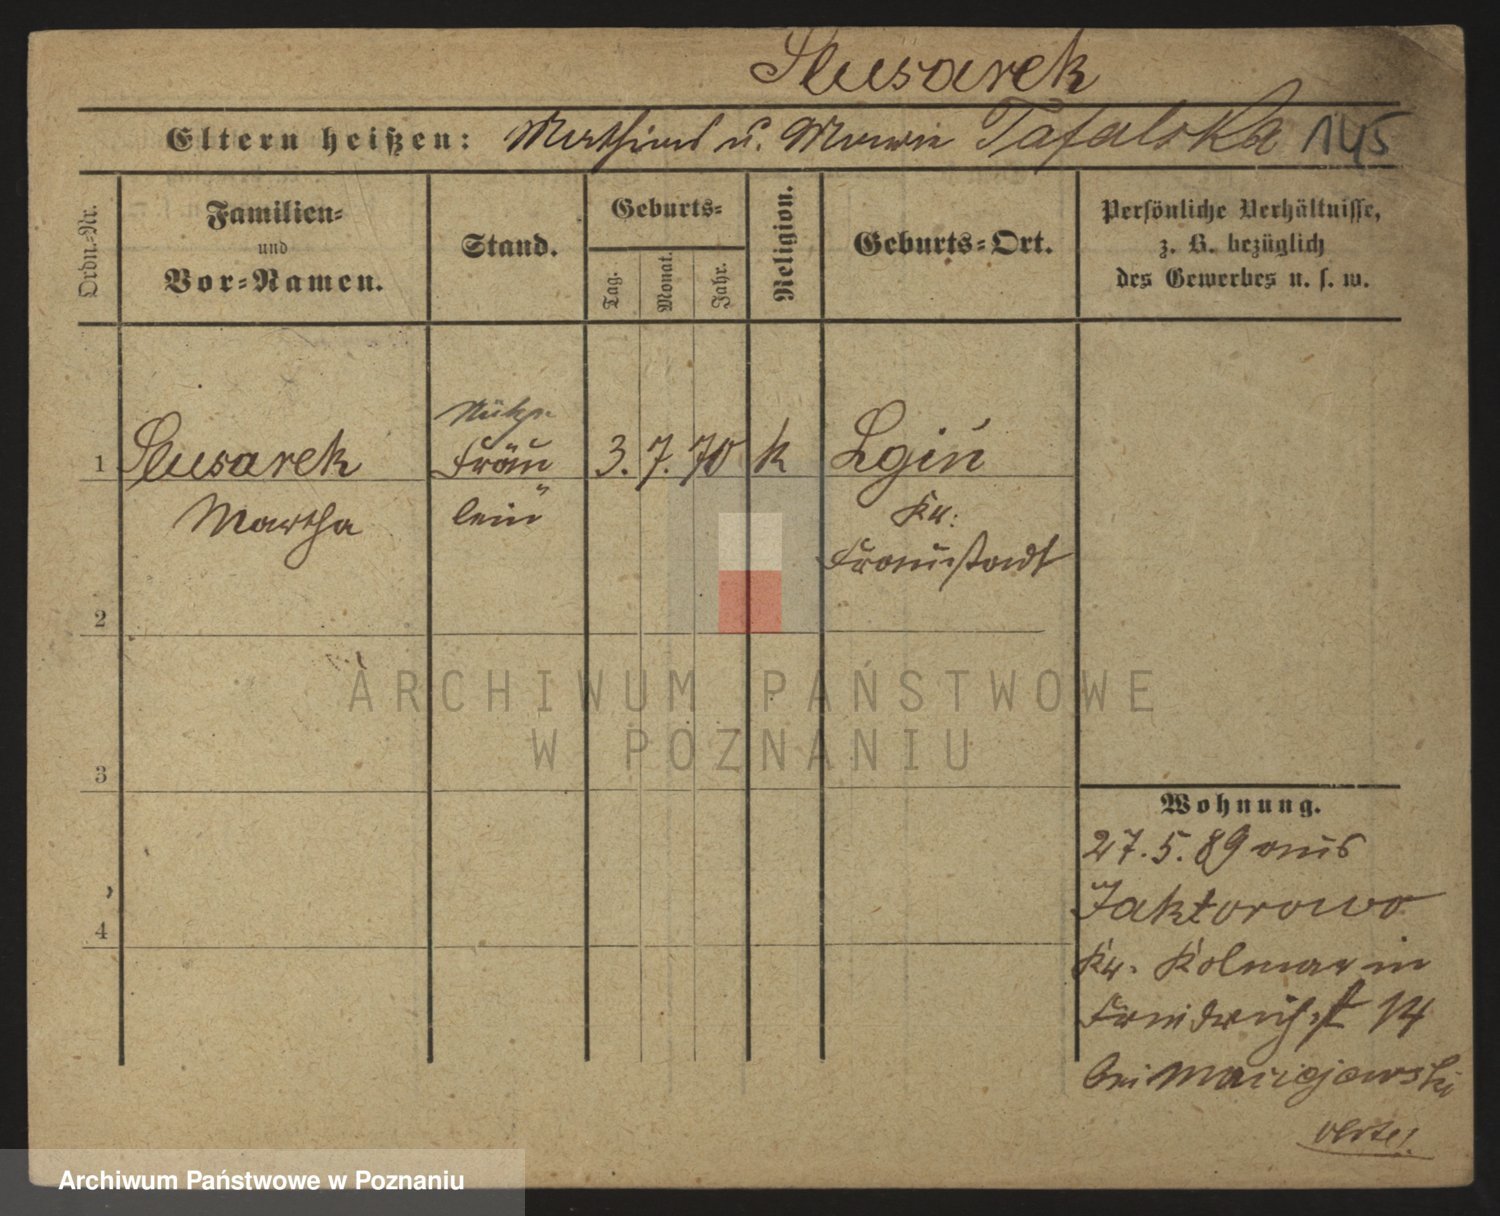 Slusarek
Eltern heißen: Mathias u. Marie Tafalska 145
Ordn.=Nr.
Familien=
und
Vor=Namen.
Stand.
Geburts=
Tag.
Monat.
Jahr.
Religion.
Geburts=Ort.
Persönliche Verhältnisse,
z. B. bezüglich
des Gewerbes u. s. w.
1 Slusarek Fräu 3. 7. 70 k Lgiń
Martha lein Kr.
Fraustadt
2
3
4
Wohnung.
27. 5. 89 aus
Jaktorowo
Kr. Kolmar in
Friedrichst 14
bei Maciejewski
ARCHIWUM PAŃSTWOWE
W POZNANIU
Archiwum Państwowe w Poznaniu